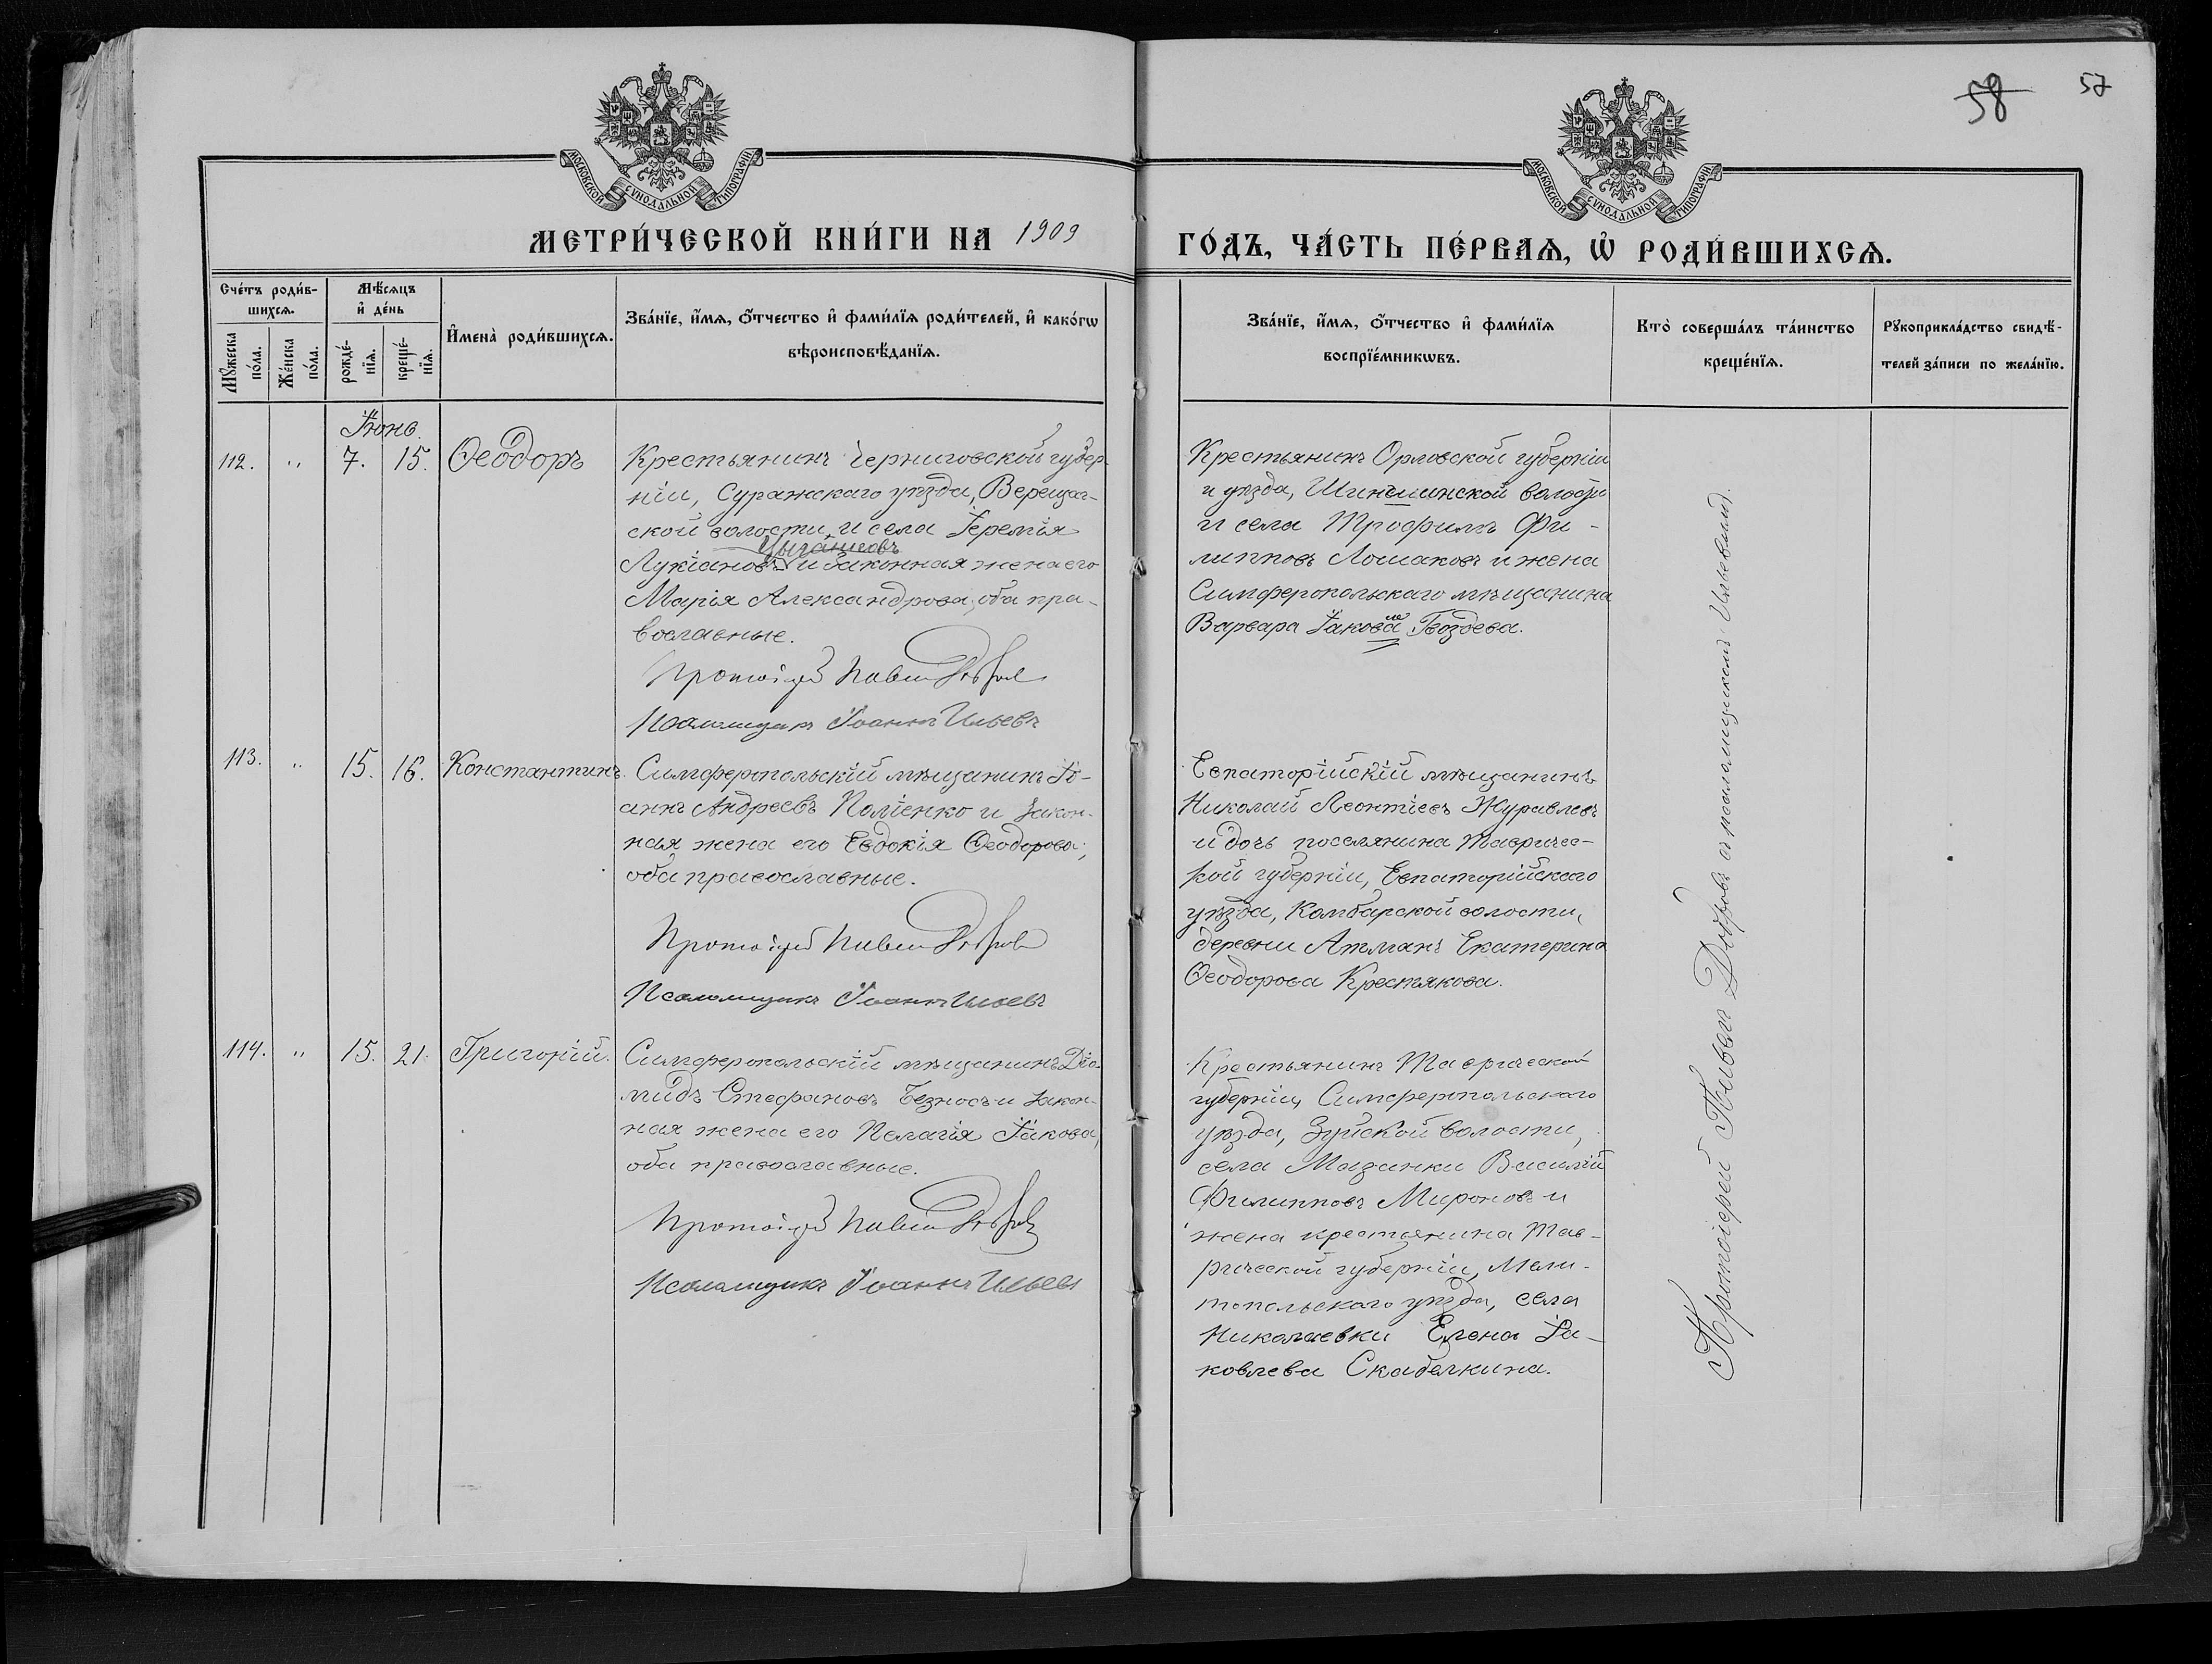 58 57
МОСКОВСКОЙ СѴНОДАЛЬНОЙ ТИПОГРАФІИ
МОСКОВСКОЙ СѴНОДАЛЬНОЙ ТИПОГРАФІИ
МЕТРИ́ЧЕСКОЙ КНИ́ГИ НА 1909
ГО́ДЪ, ЧА́СТЬ ПЕ́РВАѦ, Ѡ҆ РОДИ́ВШИХСѦ.
Сче́тъ роди́в-
шихсѧ.
Мꙋ́жеска
по́ла.
Же́нска
по́ла.
Мѣ́сѧцъ
и҆ де́нь
рожде́-
нїѧ.
креще́-
нїѧ.
И҆мена̀ роди́вшихсѧ.
Зва́нїе, и҆́мѧ, ѻ҆́тчество и҆ фами́лїѧ роди́телей, и҆ како́гѡ
вѣроисповѣ́данїѧ.
Зва́нїе, и҆́мѧ, ѻ҆́тчество и҆ фами́лїѧ
воспрїе́мникѡвъ.
Кто̀ соверша́лъ та́инство
креще́нїѧ.
Рꙋкоприкла́дство свидѣ́-
телей за́писи по жела́нїю.
Іюнь.
112. " 7. 15. Ѳеодоръ
Крестьянинъ Черниговской губер-
ніи, Суражскаго уѣзда, Верещаг-
ской волости, и села Іеремія
Цыганковъ
Лукіановъ и законная жена его
Марія Александрова, оба пра-
вославные.
Протоіерей Павелъ Добровъ
Псаломщикъ Іоаннъ Ильевъ
Крестьянинъ Орловской губерніи
и уѣзда, волости
и села Трофимъ Фи-
липповъ Лошаковъ и жена
Симферопольскаго мѣщанина
Варвара Іакова Гвоздева.
113. " 15. 16. Константинъ.
Симферопольскій мѣщанинъ Іо-
аннъ Андреевъ и закон-
ная жена его Евдокія Ѳеодорова,
оба православные.
Протоіерей Павелъ Добровъ
Псаломщикъ Іоаннъ Ильевъ
Евпаторійскій мѣщанинъ
Николай Леонтіевъ Журавлевъ
и дочь поселянина Тавричес-
кой губерніи, Евпаторійскаго
уѣзда, Камбарской волости,
деревни Атманъ Екатерина
Ѳеодорова Крестякова.
114. " 15. 21. Григорій.
Симферопольскій мѣщанинъ Діо-
мидъ Стефановъ Безносъ и закон-
ная жена его Пелагія Іакова,
оба православные.
Протоіерей Павелъ Добровъ
Псаломщикъ Іоаннъ Ильевъ
Крестьянинъ Таврической
губерніи, Симферопольскаго
уѣзда, Зуйской волости,
села Мазанки Василій
Филипповъ Мироновъ и
жена крестьянина Тав-
рической губерніи, Мели-
топольскаго уѣзда, села
Николаевки Елена Іа-
ковлева Скабелкина.
Протоіерей Павелъ Добровъ съ псаломщикомъ Ильевымъ.